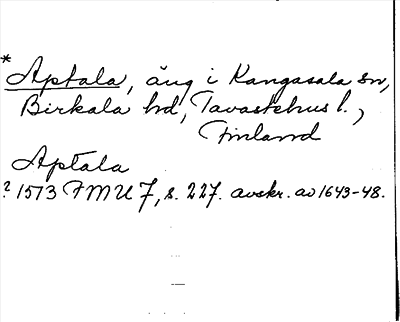 * Aptala, äng i Kangasala sn,
Birkala hd, Tavastehus l.,
Finland
Aptala
? 1513 FMU 7, s. 227. avskr. av 1643-48.